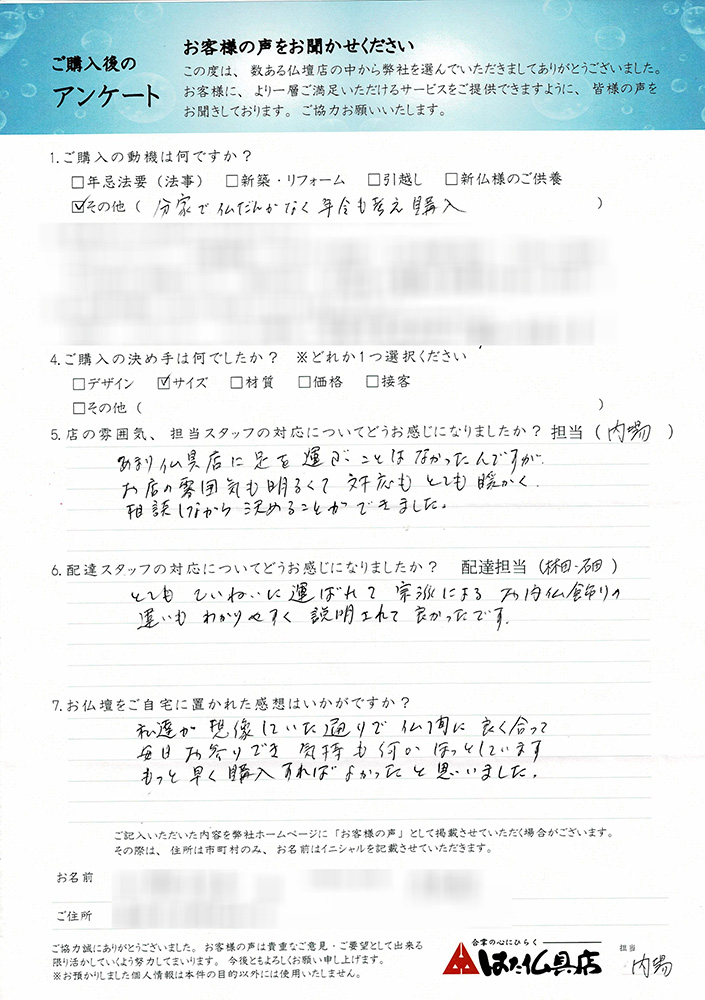 ご購入後の
アンケート
お客様の声をお聞かせください
この度は、数ある仏壇店の中から弊社を選んでいただきましてありがとうございました。
お客様に、より一層ご満足いただけるサービスをご提供できますように、皆様の声を
お聞きしております。ご協力お願いいたします。
1.ご購入の動機は何ですか？
□年忌法要（法事） □新築・リフォーム □引越し □新仏様のご供養
☑その他（ 分家で仏だんがなく年令も考え購入 ）
4.ご購入の決め手は何でしたか？ ※どれか1つ選択ください
□デザイン ☑サイズ □材質 □価格 □接客
□その他（ ）
5.店の雰囲気、担当スタッフの対応についてどうお感じになりましたか？担当（内場）
あまり仏具店に足を運ぶことはなかったんですが
お店の雰囲気も明るくて対応もとても暖かく
相談しながら決めることができました。
6.配達スタッフの対応についてどうお感じになりましたか？ 配達担当（林田・石田）
とてもていねいに運ばれて宗派によるお内仏飾りの
違いもわかりやすく説明されて良かったです。
7.お仏壇をご自宅に置かれた感想はいかがですか？
私達が想像していた通りで仏間に良く合って
毎日お参りでき気持も何かほっとしています
もっと早く購入すればよかったと思いました。
ご記入いただいた内容を弊社ホームページに「お客様の声」として掲載させていただく場合がございます。
その際は、住所は市町村のみ、お名前はイニシャルを記載させていただきます。
お名前
ご住所
ご協力誠にありがとうございました。お客様の声は貴重なご意見・ご要望として出来る
限り活かしていくよう努力してまいります。今後ともよろしくお願い申し上げます。
※お預かりしました個人情報は本件の目的以外には使用いたしません。
合掌の心にひらく
はた仏具店
担当
内場